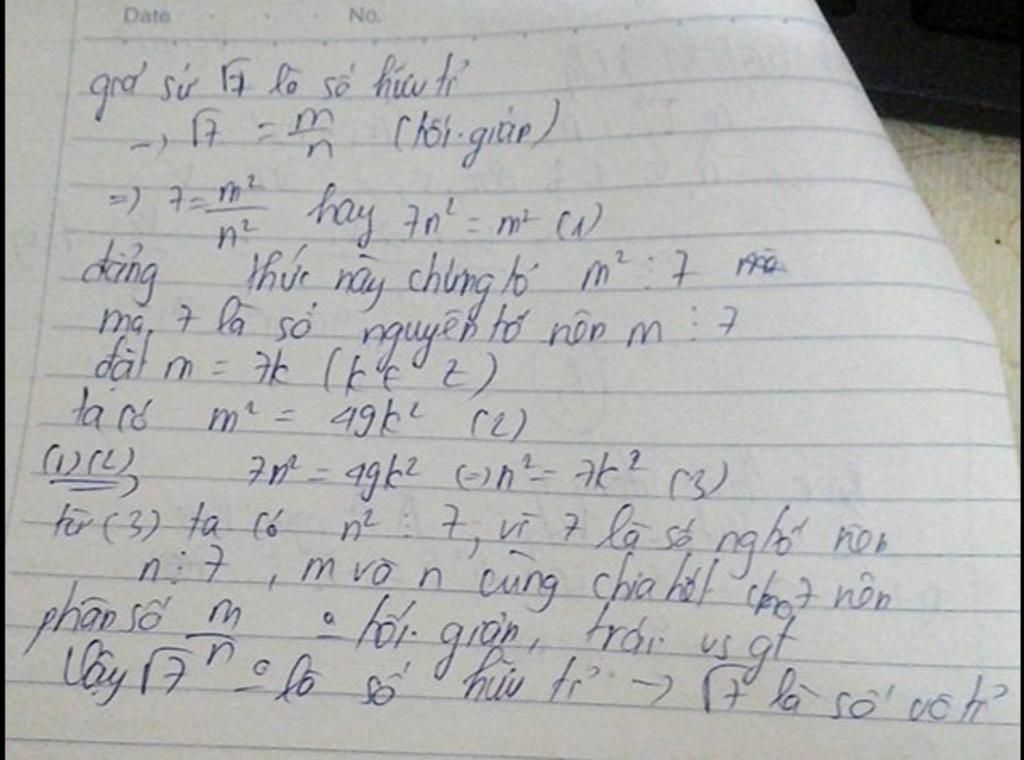 Date No.
giả sử √7 là số hữu tỉ
→ √7 = m/n (tối giản)
=> 7 = m²/n² hay 7n² = m² (1)
đẳng thức này chứng tỏ m² ⋮ 7
mà 7 là số nguyên tố nên m ⋮ 7
đặt m = 7k (k ∈ Z)
ta có m² = 49k² (2)
(1)(2) 7n² = 49k² (=) n² = 7k² (3)
từ (3) ta có n² ⋮ 7, vì 7 là số ngtố nên
n ⋮ 7, m và n cùng chia hết cho 7 nên
phân số m/n tối giản, trái vs gt
Vậy √7 là số hữu tỉ → √7 là số vô tỉ